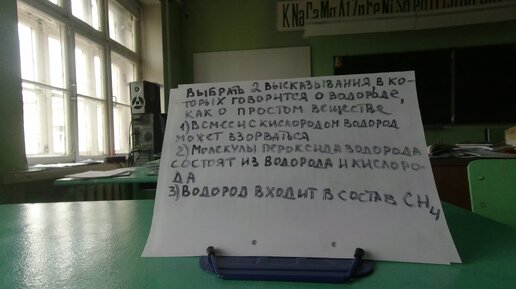 K Na Ca Mg Al Zn Fe Ni Sn Pb
ВЫБРАТЬ 2 ВЫСКАЗЫВАНИЯ В КО-
ТОРЫХ ГОВОРИТСЯ О ВОДОРОДЕ,
КАК О ПРОСТОМ ВЕЩЕСТВЕ
1) В СМЕСИ С КИСЛОРОДОМ ВОДОРОД
МОЖЕТ ВЗОРВАТЬСЯ
2) МОЛЕКУЛЫ ПЕРОКСИДА ВОДОРОДА
СОСТОЯТ ИЗ ВОДОРОДА И КИСЛОРО-
ДА
3) ВОДОРОД ВХОДИТ В СОСТАВ CH4